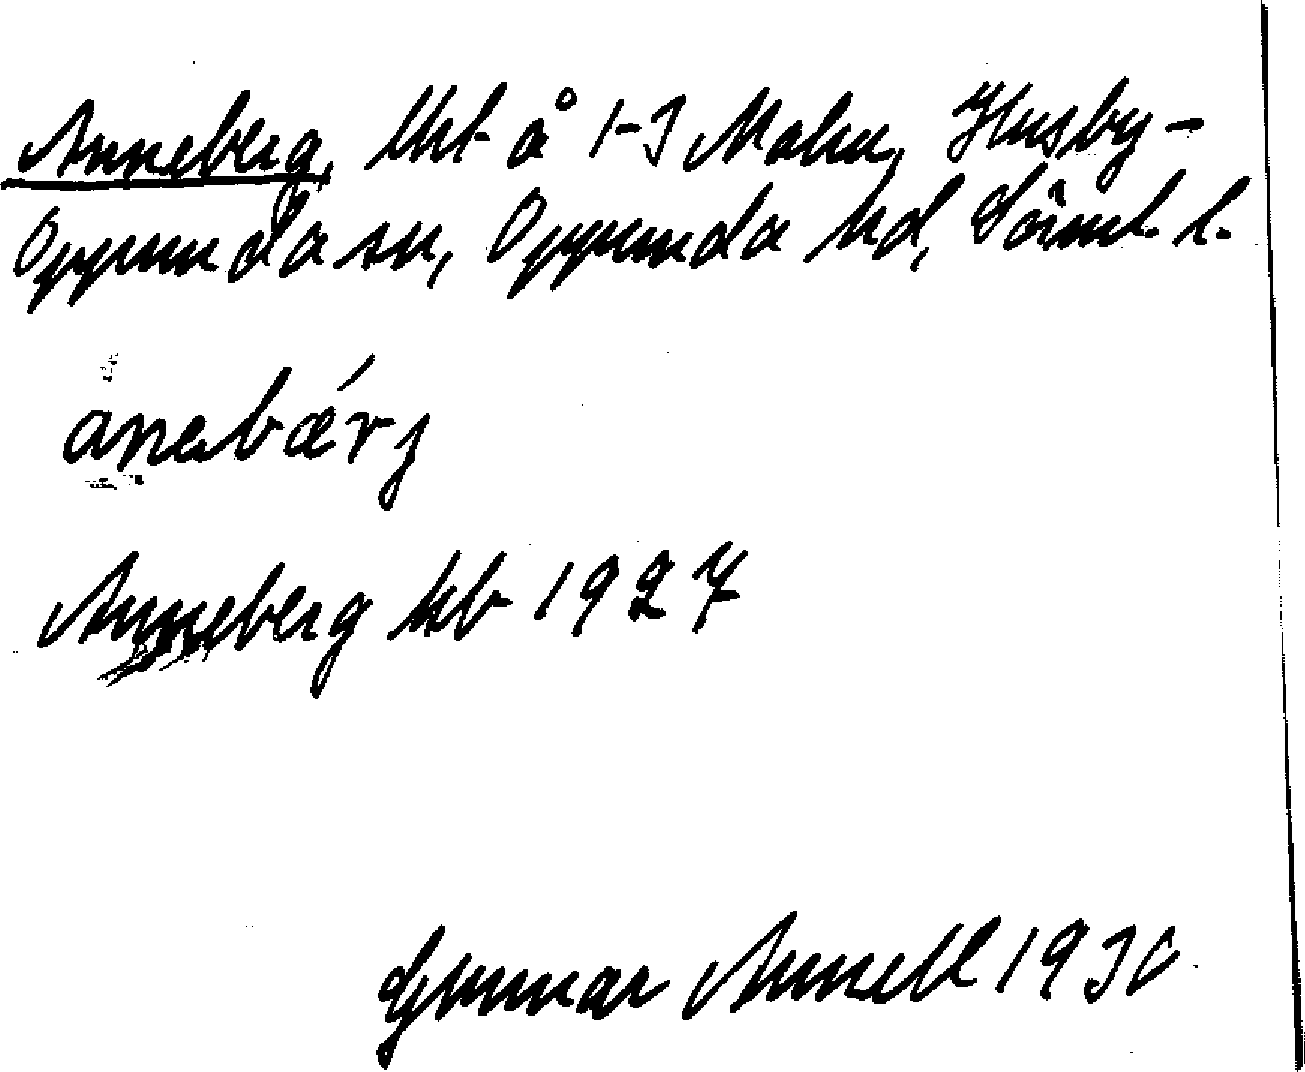 Anneberg, lht å 1-3 Malm, Husby-
Oppunda sn, Oppunda hd, Söml. l.
anebǽrj
Anneberg kb 1927
Gunnar Annell 1930